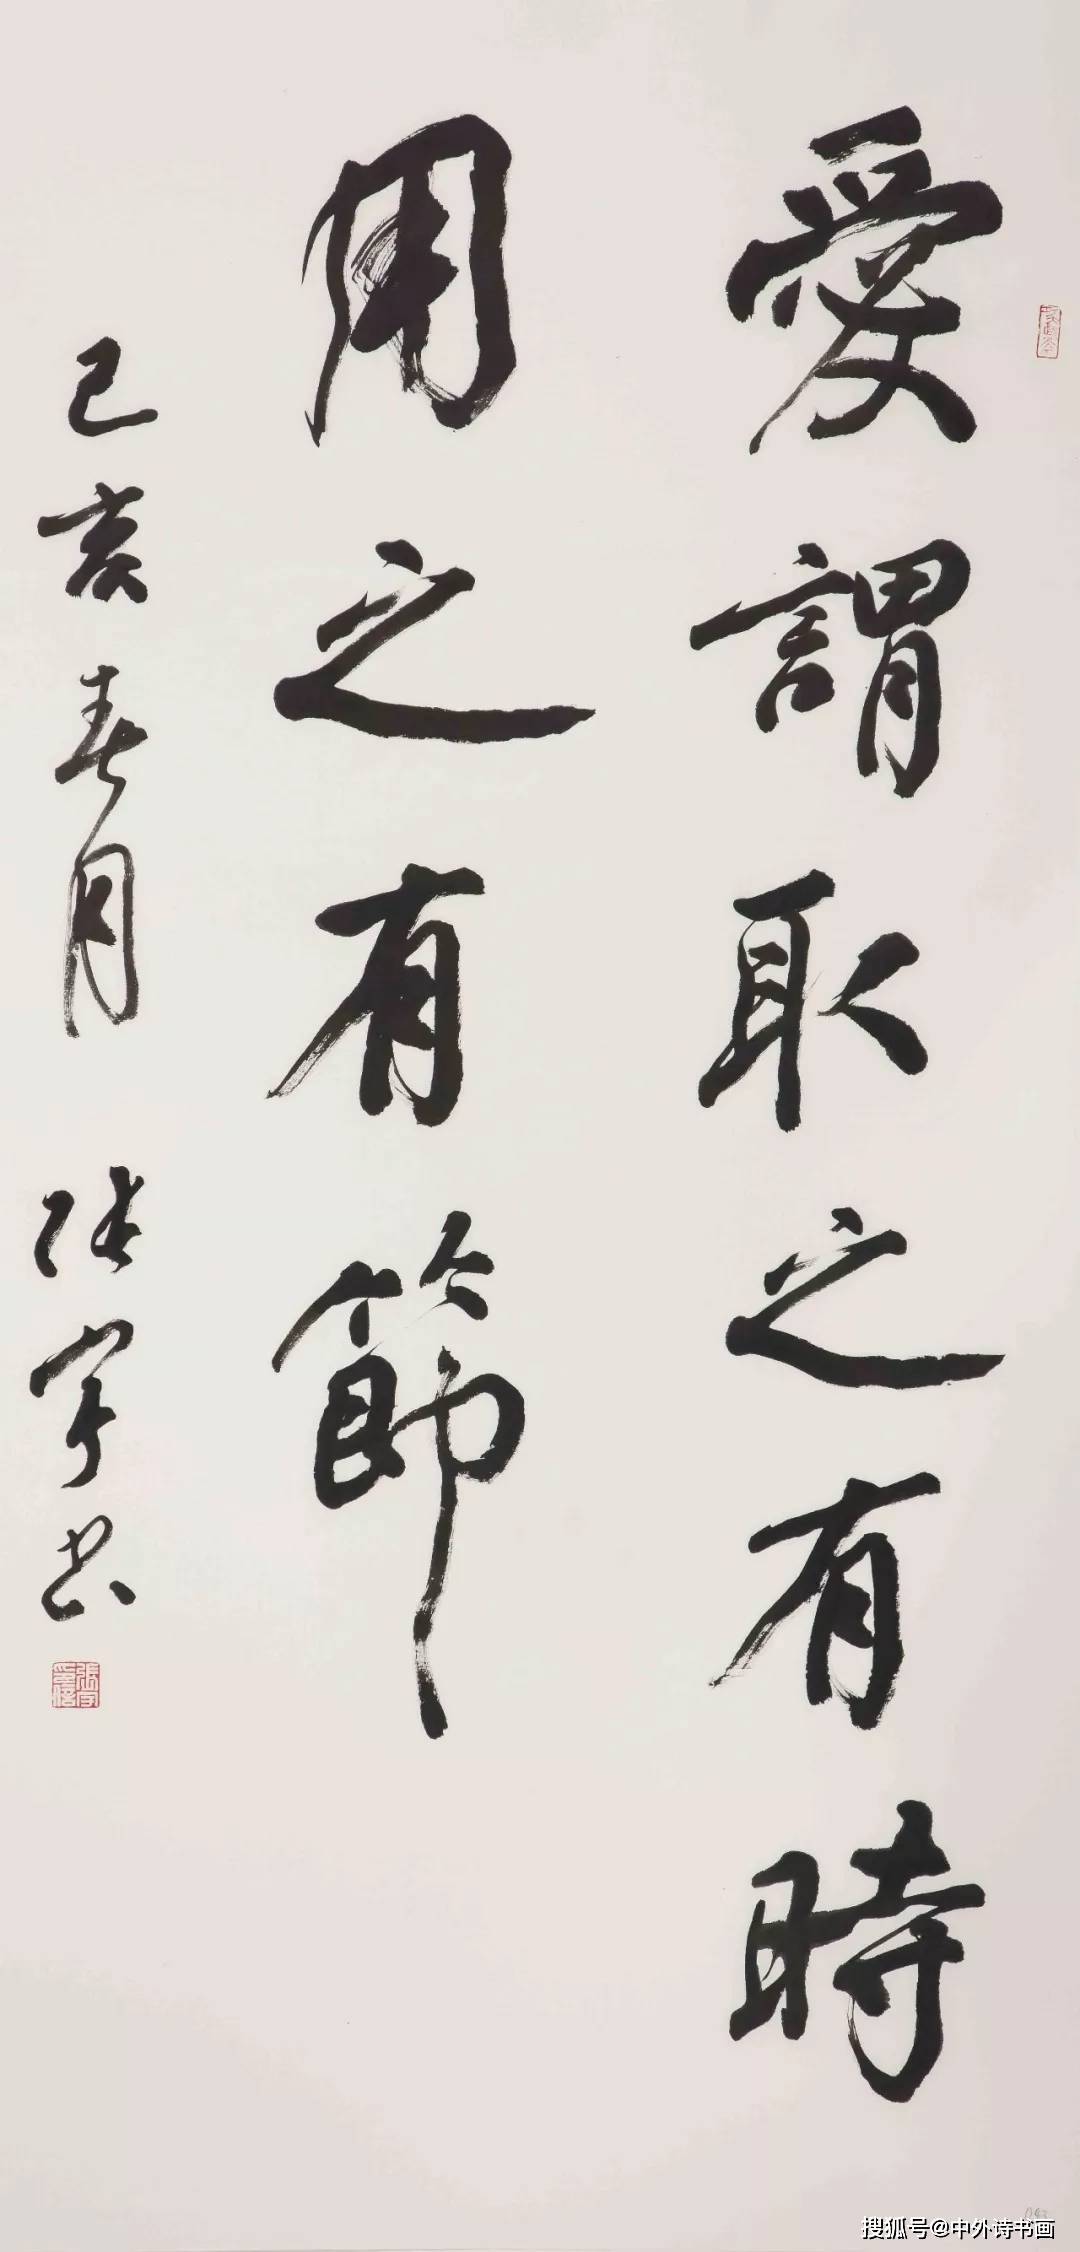 愛謂取之有時
用之有節
己亥春月 张宇书
張宇
搜狐号@中外诗书画